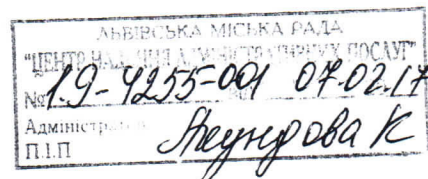 ЛЬВІВСЬКА МІСЬКА РАДА
"ЦЕНТР НАДАННЯ АДМІНІСТРАТИВНИХ ПОСЛУГ"
№ 1.9-4255-001 07.02.17
Адміністратор
П.І.П